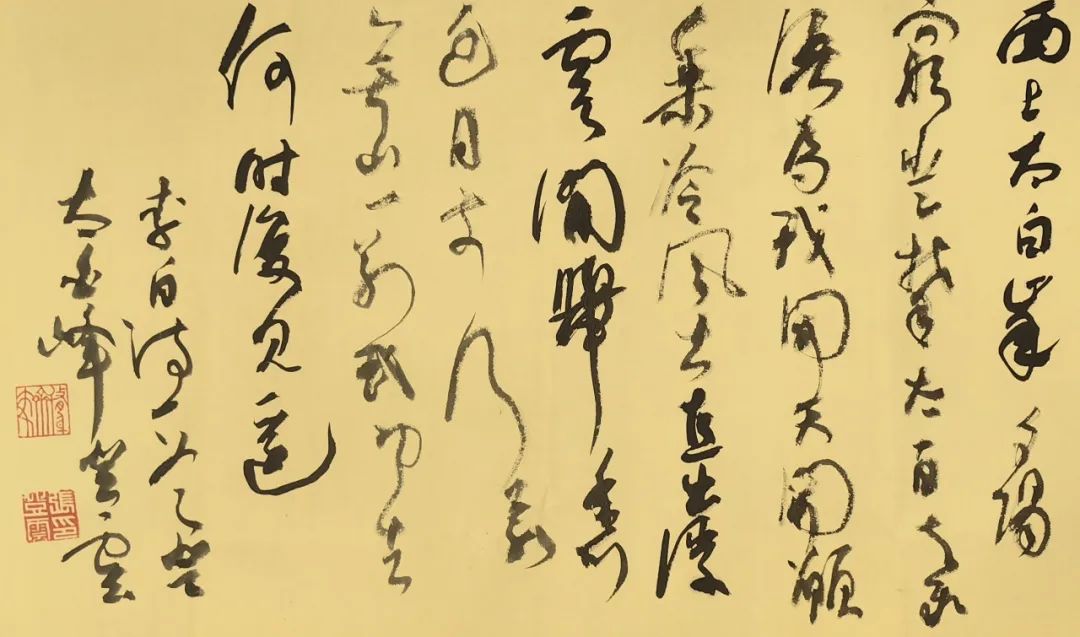 西上太白峯夕陽
窮登攀太白与我
語为我開天関願
乘冷風去直出浮
雲間舉手可
近月前行若
無山一別武功去
何时復見還
李白詩一首登
太白峰登雲